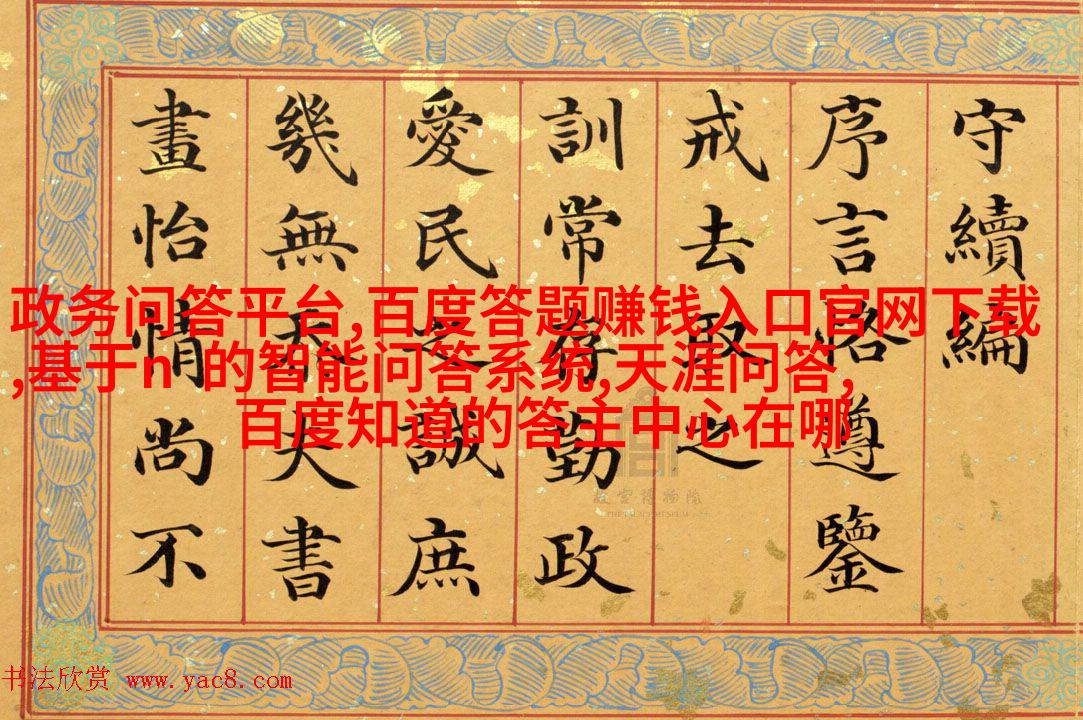 政务问答平台,百度答题赚钱入口官网下载
,基于n 的智能问答系统,天涯问答,
百度知道的答主中心在哪
守續編
序言恪遵鑒
戒去取之
訓常存勤政
愛民之誠庶
幾無忝夫書
畫怡情尚不
故宮博物院
THE PALACE MUSEUM
书法欣赏 www.yac8.com